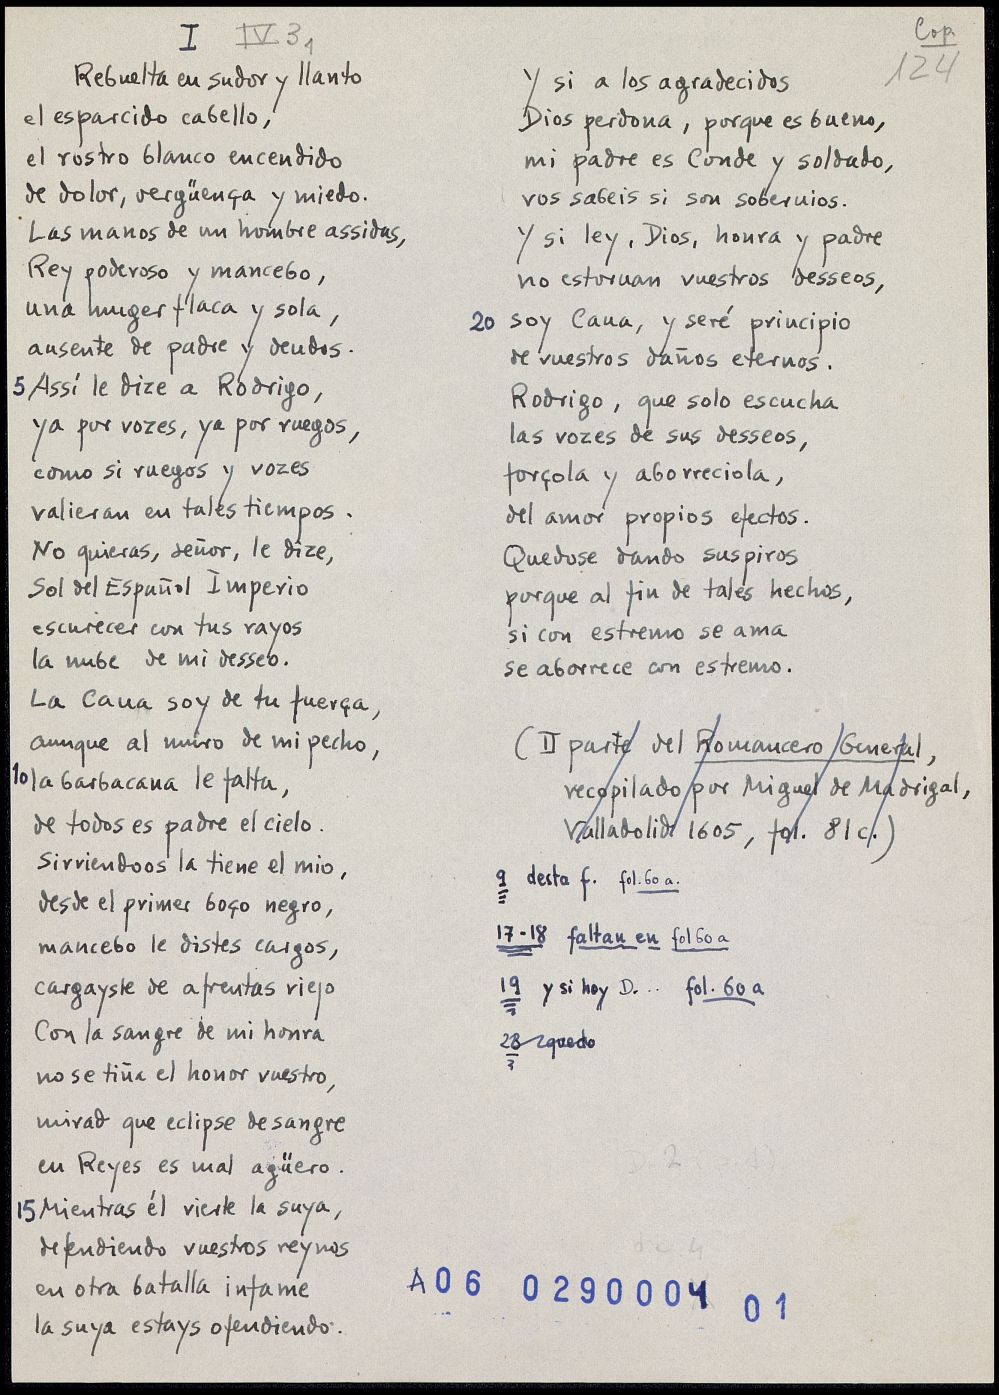 I IV 3,
Cop
124
Rebuelta en sudor y llanto
el esparcido cabello,
el rostro blanco encendido
de dolor, vergüença y miedo.
Las manos de un hombre assidas,
Rey poderoso y mancebo,
una muger flaca y sola,
ausente de padre y deudos.
5 Assí le dize a Rodrigo,
ya por vozes, ya por ruegos,
como si ruegos y vozes
valieran en tales tiempos.
No quieras, señor, le dize,
Sol del Español Imperio
escurecer con tus rayos
la nube de mi desseo.
La Caua soy de tu fuerça,
aunque al muro de mi pecho,
10 la barbacana le falta,
de todos es padre el cielo.
Sirviendoos la tiene el mio,
desde el primer boço negro,
mancebo le distes cargos,
cargayste de afrentas viejo
Con la sangre de mi honra
no se tiña el honor vuestro,
mirad que eclipse de sangre
en Reyes es mal agüero.
15 Mientras él vierte la suya,
defendiendo vuestros reynos
en otra batalla infame
la suya estays ofendiendo.
Y si a los agradecidos
Dios perdona, porque es bueno,
mi padre es Conde y soldado,
vos sabeis si son soberuios.
Y si ley, Dios, honra y padre
no estoruan vuestros desseos,
20 soy Caua, y seré principio
de vuestros daños eternos.
Rodrigo, que solo escucha
las vozes de sus desseos,
forçola y aborreciola,
del amor propios efectos.
Quedose dando suspiros
porque al fin de tales hechos,
si con estremo se ama
se aborrece con estremo.
(II parte del Romancero General,
recopilado por Miguel de Madrigal,
Valladolid 1605, fol. 81c.)
9 desta f. fol. 60 a.
17-18 faltan en fol 60 a
19 y si hoy D... fol. 60 a
28 quedo
A06 0290004 01